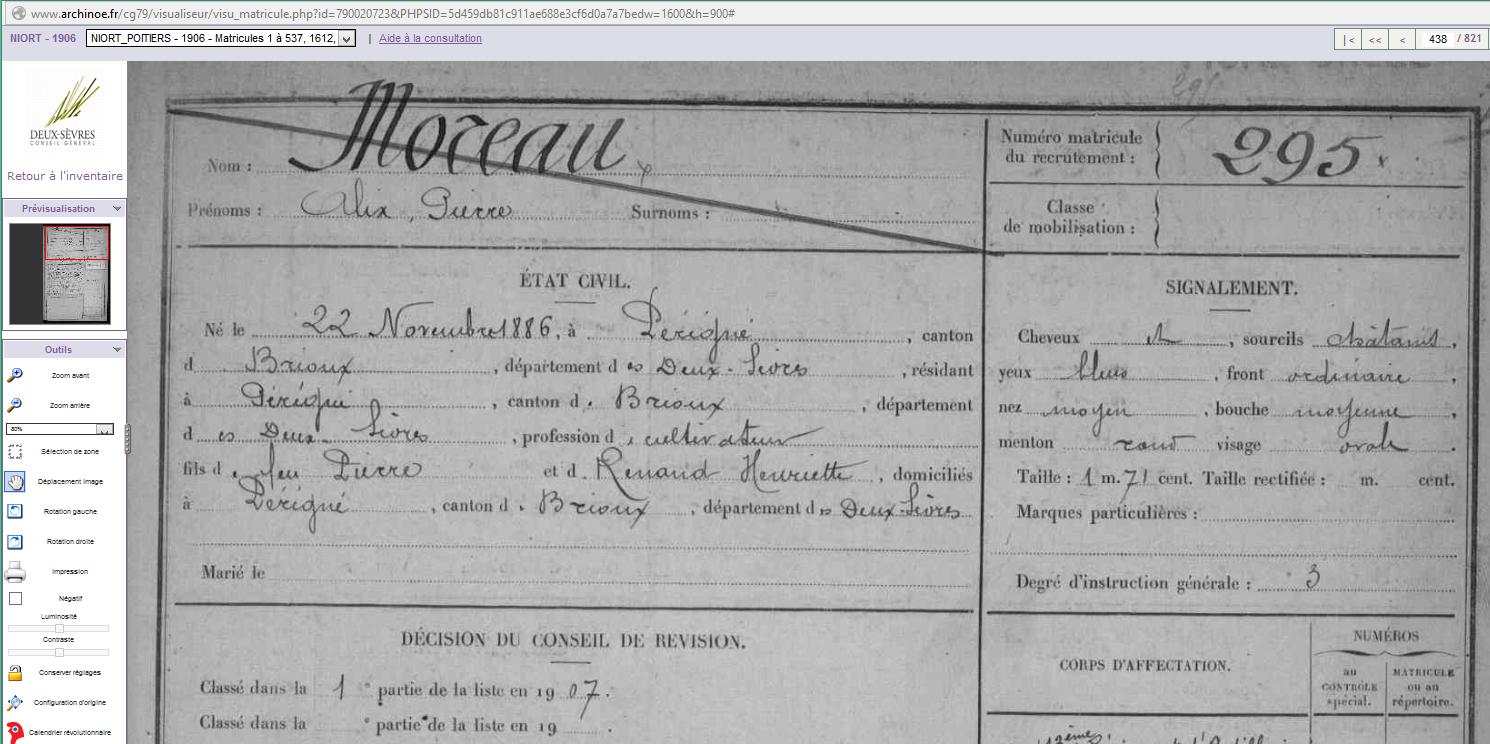 www.archinoe.fr/cg79/visualiseur/visu_matricule.php?id=790020723&PHPSID=5d459db81c911ae688e3cf6d0a7a7bedw=1600&h=900#
NIORT - 1906
NIORT_POITIERS - 1906 - Matricules 1 à 537, 1612,
| Aide à la consultation
|< << < 438 / 821
DEUX-SÈVRES
CONSEIL GÉNÉRAL
Retour à l'inventaire
Prévisualisation
Outils
Zoom avant
Zoom arrière
80%
Sélection de zone
Déplacement image
Rotation gauche
Rotation droite
Impression
Négatif
Luminosité
Contraste
Conserver réglages
Configuration d'origine
Calendrier révolutionnaire
Nom : Moreau
Prénoms : Alix, Pierre Surnoms :
Numéro matricule
du recrutement : 295
Classe
de mobilisation :
ÉTAT CIVIL.
Né le 22 Novembre 1886, à Périgné, canton
d Brioux, département des Deux-Sèvres, résidant
à Périgné, canton d Brioux, département
des Deux Sèvres, profession d cultivateur
fils d feu Pierre et d Renaud Henriette, domiciliés
à Périgné, canton d Brioux, département des Deux-Sèvres
Marié le
SIGNALEMENT.
Cheveux ch, sourcils châtains,
yeux bleus, front ordinaire,
nez moyen, bouche moyenne,
menton rond visage ovale.
Taille : 1 m. 71 cent. Taille rectifiée : m. cent.
Marques particulières :
Degré d'instruction générale : 3
DÉCISION DU CONSEIL DE REVISION.
Classé dans la 1e partie de la liste en 1907.
Classé dans la e partie de la liste en 19 .
CORPS D'AFFECTATION.
NUMÉROS
au
CONTRÔLE
spécial.
MATRICULE
ou au
répertoire.